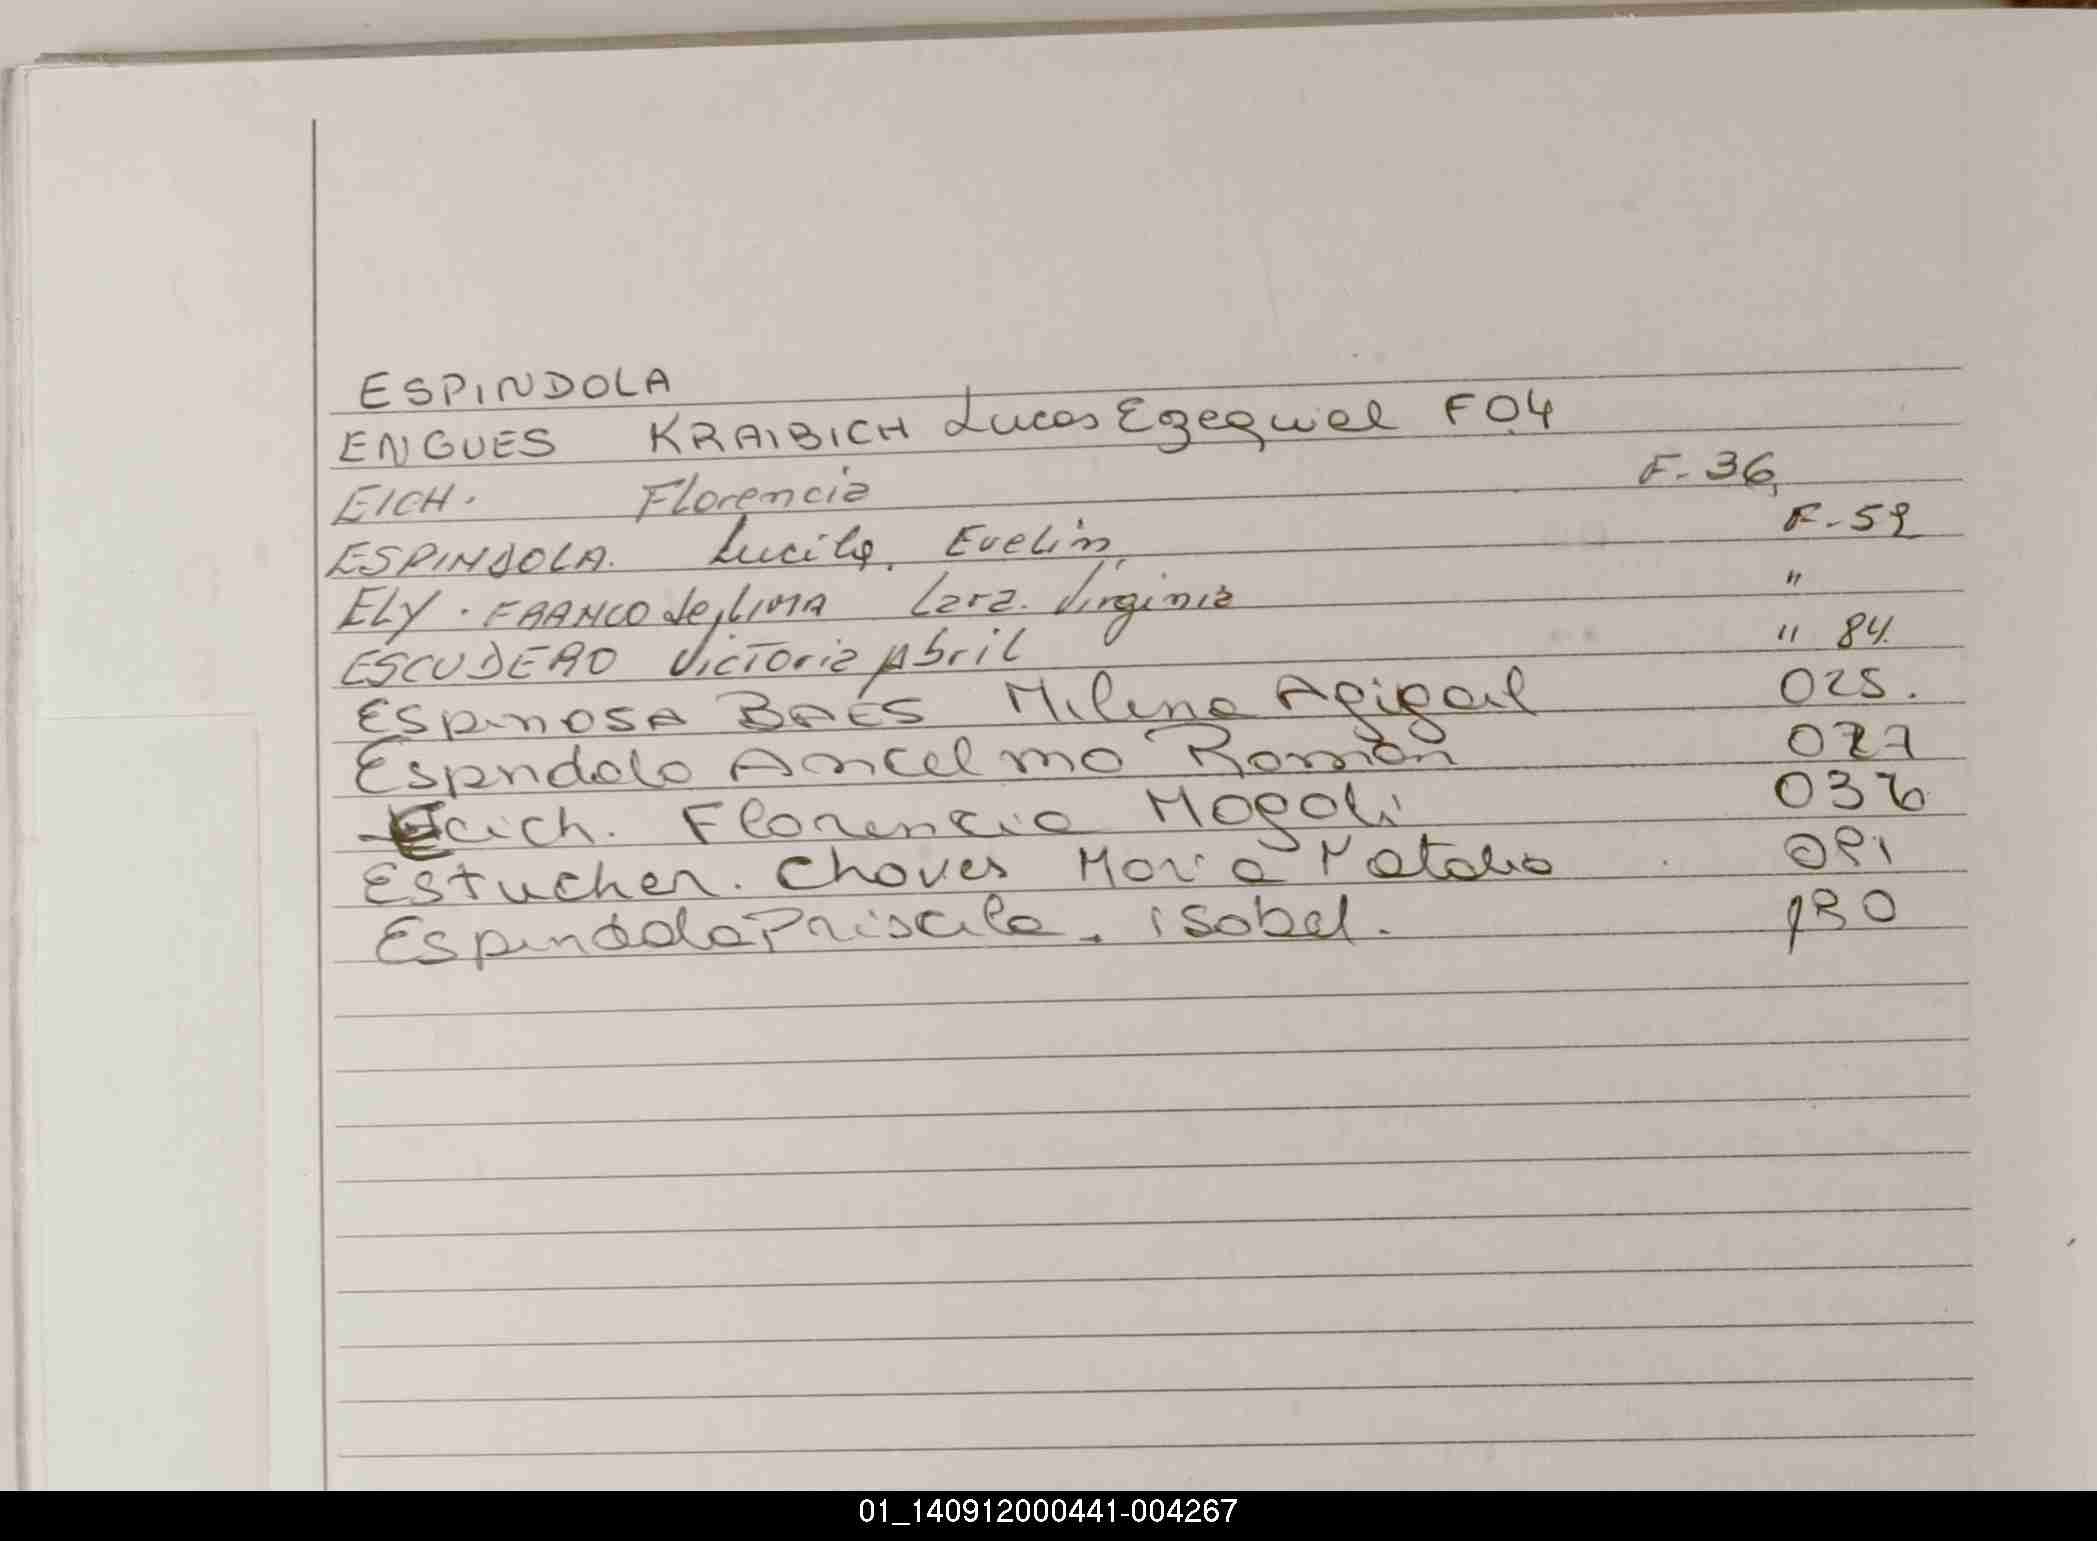 ESPINDOLA
ENGUES KRAIBICH Lucas Ezequiel F04
EICH. Florencia F-36,
ESPINDOLA. Lucila, Evelin, F-59
ELY. FRANCO de LIMA Lara. Virginia "
ESCUDERO Victoria Abril " 84.
ESpinOSA BAES Milena Agigail 025.
Espndola Ancelmo Román 027
Ecich. Florencia Magali 036
Estucher. Chaves Maria Natalia 091
Espindola Priscila. isabel. 130
01_140912000441-004267